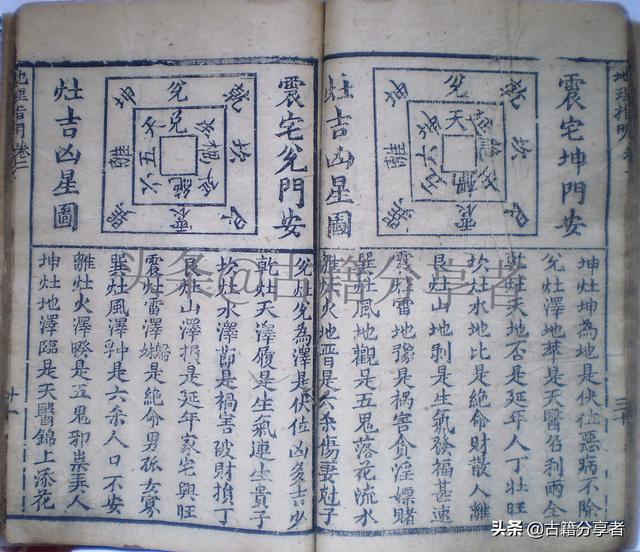 地理指明卷
震宅坤門安
坤 兌 乾
離 坎
巽 震 艮
天
六
五
灶吉凶星圖
坤灶坤為地是伏位惡病不除
兌灶澤地萃是天醫名利兩全
乾灶天地否是延年人丁壯旺
坎灶水地比是絕命財散人離
艮灶山地剝是生氣發福甚速
震灶雷地豫是禍害貪淫嫖賭
巽灶風地觀是五鬼落花流水
離灶火地晉是六杀傷妻尅子
震宅兌門安
坤 兌 乾
離 坎
巽 震 艮
兌
天
五
六
灶吉凶星圖
兌灶兌為澤是伏位凶多吉少
乾灶天澤履是生氣運生貴子
坎灶水澤節是禍害破財損丁
艮灶山澤損是延年家宅興旺
震灶雷澤歸妹是絕命男孤女寡
巽灶風澤孚中是六杀人口不安
離灶火澤睽是五鬼邪祟弄人
坤灶地澤臨是天醫錦上添花
地理指明卷二
头条@古籍分享者
头条 @古籍分享者